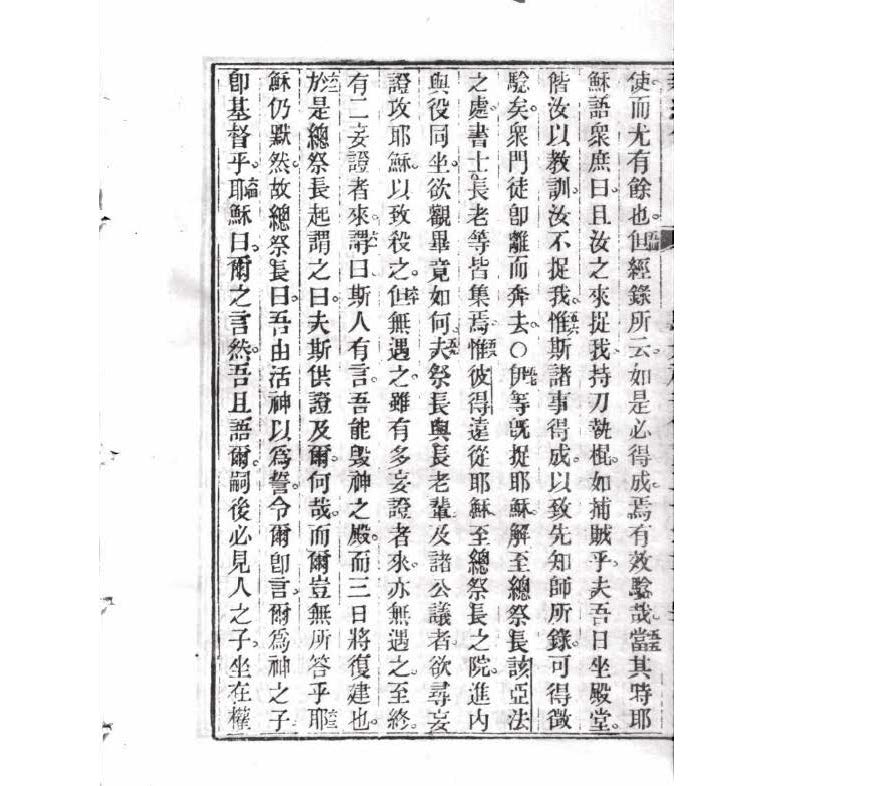 使而尤有餘也。但經錄所云。如是必得成焉有效驗哉。當其時耶
穌語衆庶曰。且汝之來捉我。持刀執棍。如捕賊乎。夫吾日坐殿堂。
偕汝以教訓。汝不捉我。惟斯諸事得成。以致先知師所錄。可得徵
驗矣。衆門徒卽離而奔去。○伊等旣捉耶穌解至總祭長該亞法
之處。書士。長老等皆集焉。惟彼得遠從耶穌至總祭長之院。進內
與役同坐。欲觀畢竟如何。夫祭長與長老輩。及諸公議者。欲尋妄
證攻耶穌。以致殺之。但無遇之。雖有多妄證者來。亦無遇之。至終。
有二妄證者來。謂曰。斯人有言。吾能毀神之殿。而三日將復建也。
於是總祭長起謂之曰。夫斯供證及爾。何哉。而爾豈無所答乎。耶
穌仍默然。故總祭長曰。吾由活神以爲誓。令爾卽言。爾爲神之子
卽基督乎。耶穌曰。爾之言然。吾且語爾。嗣後必見人之子。坐在權